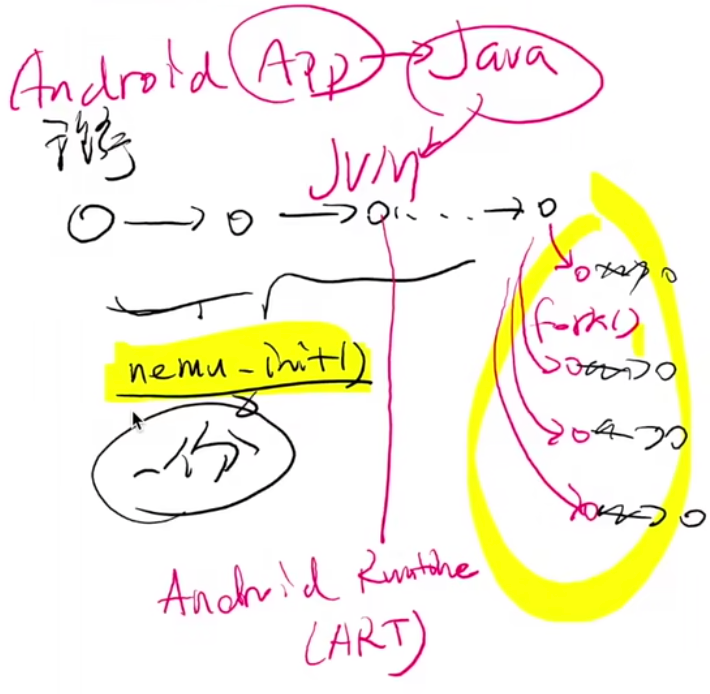 Android App Java
JVM
fork()
nemu_init()
一份
Android Runtime
(ART)